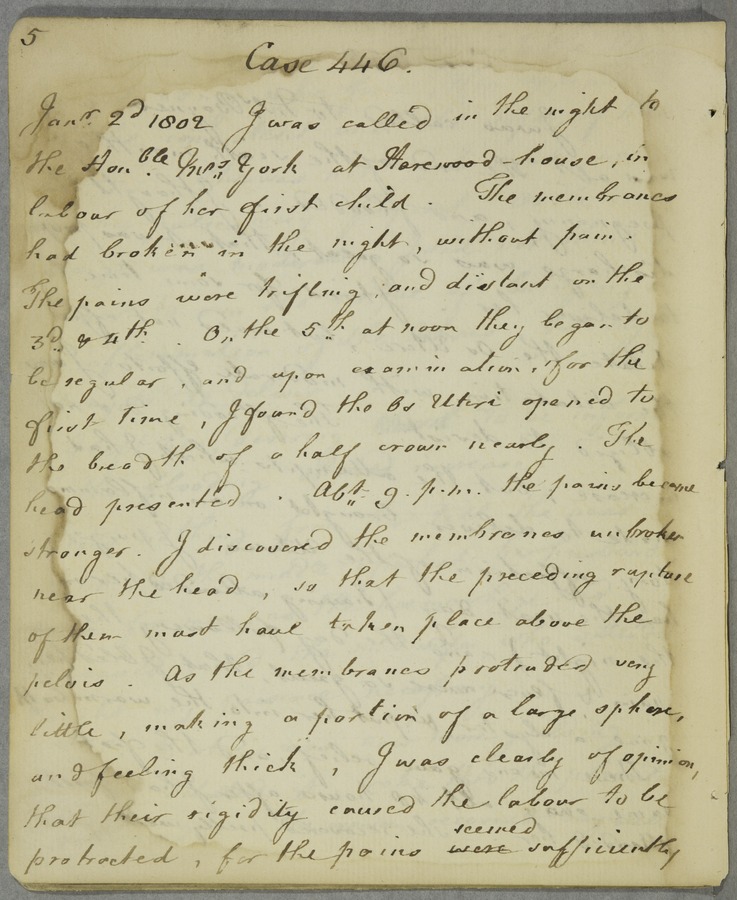 5
Case 446.
Janr. 2d 1802 I was called in the night to
the Honble. Mrs York at Harewood-house, in
labour of her first child. The membranes
had broken in the night, without pain.
The pains were trifling, and distant on the
3d. & 4th. On the 5th at noon they began to
be regular, and upon examination, for the
first time, I found the Os Uteri opened to
the breadth of a half crown nearly. The
head presented. Abt. 9. p.m. the pains became
stronger. I discovered the membranes unbroken
near the head, so that the preceding rupture
of them must have taken place above the
pelvis. As the membranes protruded very
little, making a portion of a large sphere,
and feeling thick, I was clearly of opinion,
that their rigidity caused the labour to be
seemed
protracted, for the pains were sufficiently